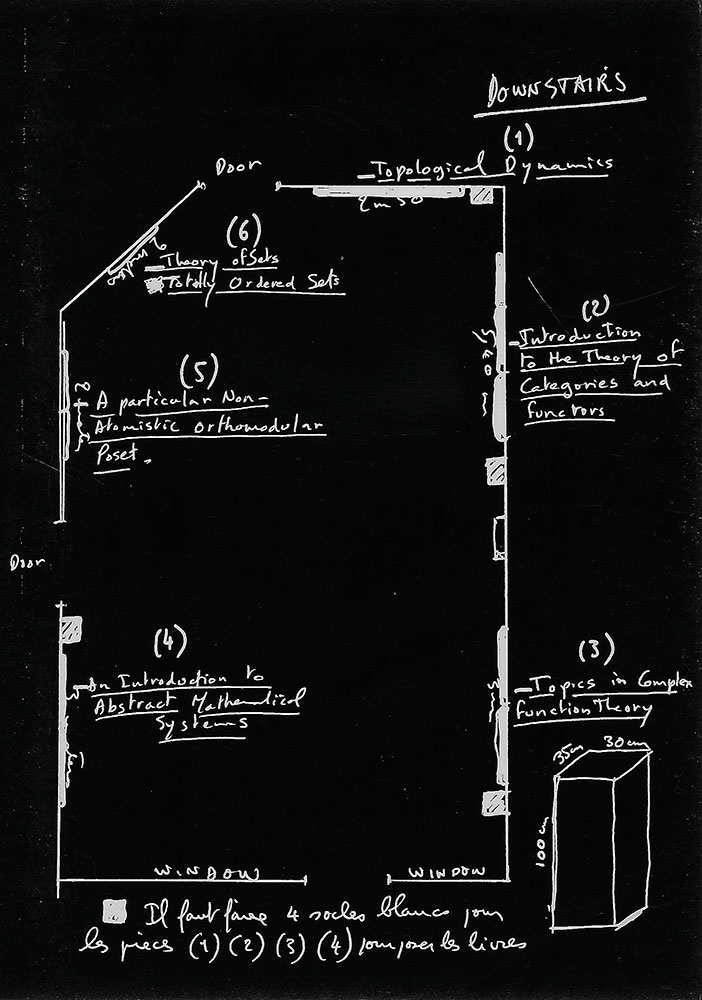 DOWNSTAIRS
(1)
Topological Dynamics
Door
2m50
(6)
Theory of Sets
Totally Ordered Sets
(2)
Introduction
to the Theory of
Categories and
functors
(5)
A particular Non-
Atomistic orthomodular
Poset.
Door
(4)
An Introduction to
Abstract Mathematical
Systems
(3)
Topics in Complex
function Theory
35cm
30cm
100cm
WINDOW
WINDOW
Il faut faire 4 socles blancs pour
les pieces (1) (2) (3) (4) pour poser les livres